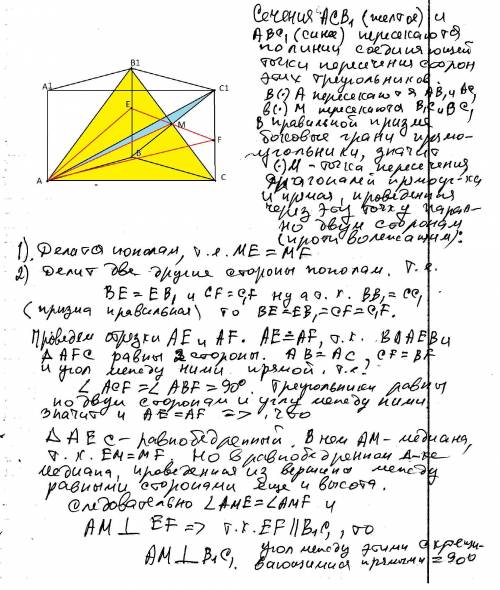 Сечения ACB₁ (желтое) и
ABC₁ (синее) пересекаются
по линии соединяющей
точки пересечения сторон
этих треугольников.
В (·) A пересекаются AB₁ и AC₁
в (·) M пересекаются B₁C и BC₁
В правильной призме
боковые грани прямо-
угольники, значит
(·) M - точка пересечения
диагоналей прямоуг-ка
и прямая, проведенная
через эту точку парал-
но двум сторонам
(противолежащим):
B1
A1
C1
E
M
F
B
A
C
1). Делится пополам, т.е. ME = MF
2) Делит две другие стороны пополам. Т.е.
BE = EB₁ и CF = C₁F ну а т.к. BB₁ = CC₁
(призма правильная) то BE = EB₁ = CF = C₁F.
Проведем отрезки AE и AF. AE = AF, т.к. в ΔAEB и
ΔAFC равны 2 стороны. AB = AC, CF = BF
и угол между ними прямой, т.е.
∠ACF = ∠ABF = 90°. Треугольники равны
по двум сторонам и углу между ними
значит и AE = AF => , что
ΔAEC - равнобедренный. В нем AM - медиана,
т.к. EM = MF. Но в равнобедренном Δ-ке
медиана, проведенная из вершины между
равными сторонами еще и высота.
Следовательно ∠AME = ∠AMF и
AM ⊥ EF => т.к. EF ∥ B₁C₁, то
AM ⊥ B₁C₁. угол между этими скрещи-
вающимися прямыми = 90°